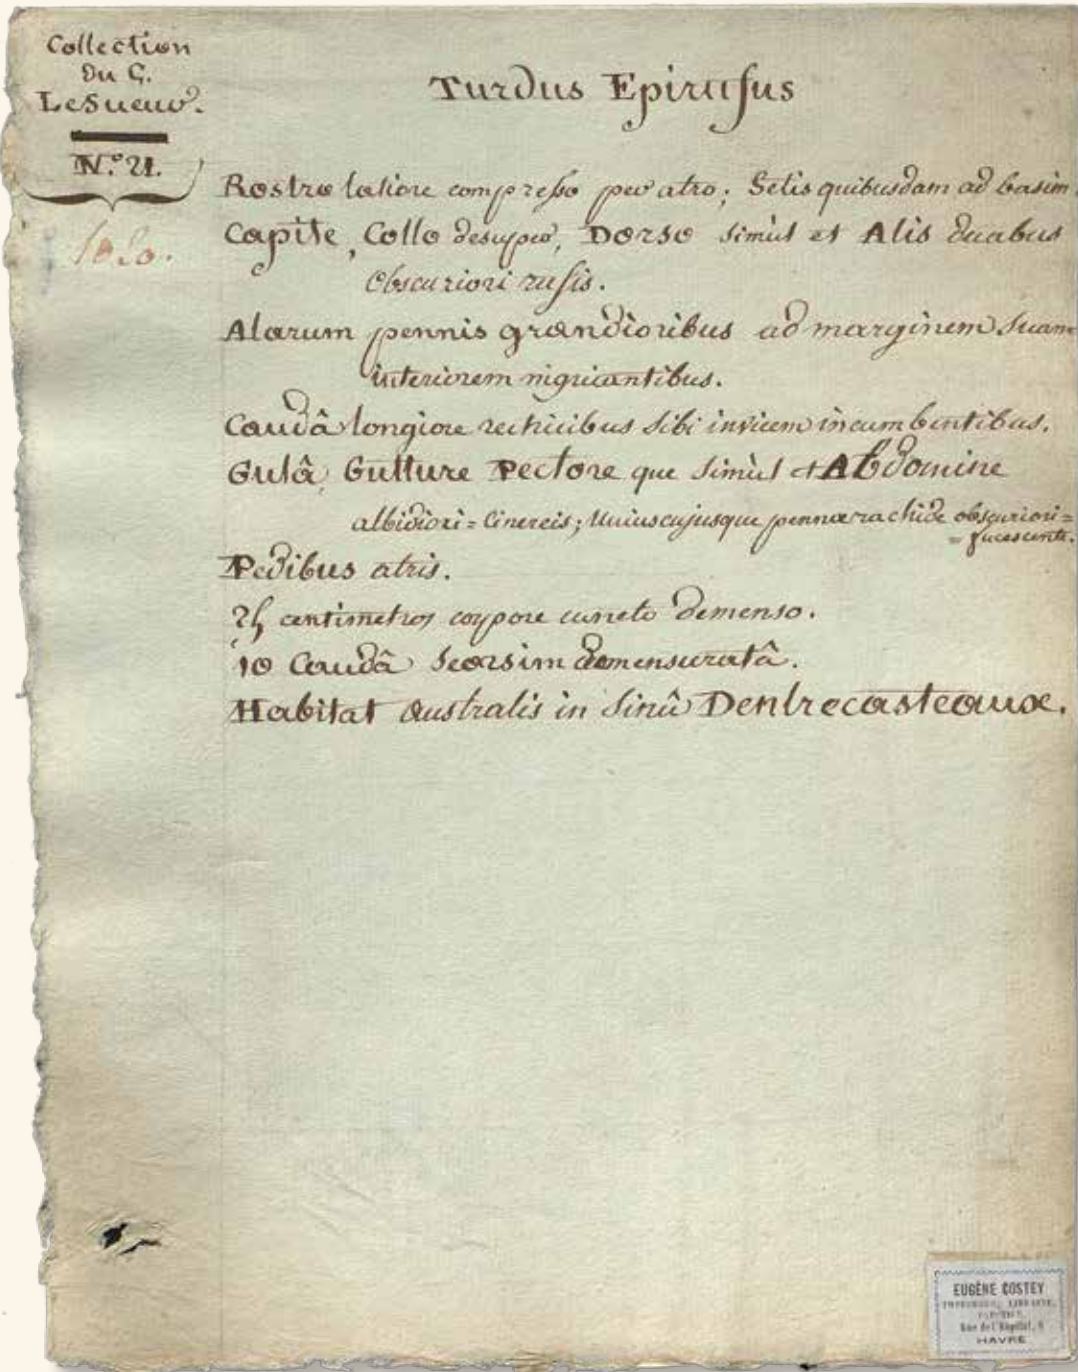 Collection
Du C.
LeSueur.
N.° 21.
Turdus Epirusus
Rostro latiore compresso per atro; Setis quibusdam ad basim.
Capite, Collo desuper, Dorso simùl et Alis duabus
obscuriori rufis.
Alarum pennis grandioribus ad marginem suam
interiorem nigricantibus.
Caudâ longiore rectricibus sibi invicem incumbentibus.
Gulâ, Gutture Pectore que simùl et Abdomine
albidiori = Cinereis; Uniuscujusque pennæ rachide obscuriori =
= fucescente.
Pedibus atris.
25 centimetros corpore cuncto demenso.
10 Caudâ Seorsim demensuratâ.
Habitat australis in Sinû Dentrecasteaux.
EUGÈNE COSTEY
Rue de l'Hôpital,
HAVRE